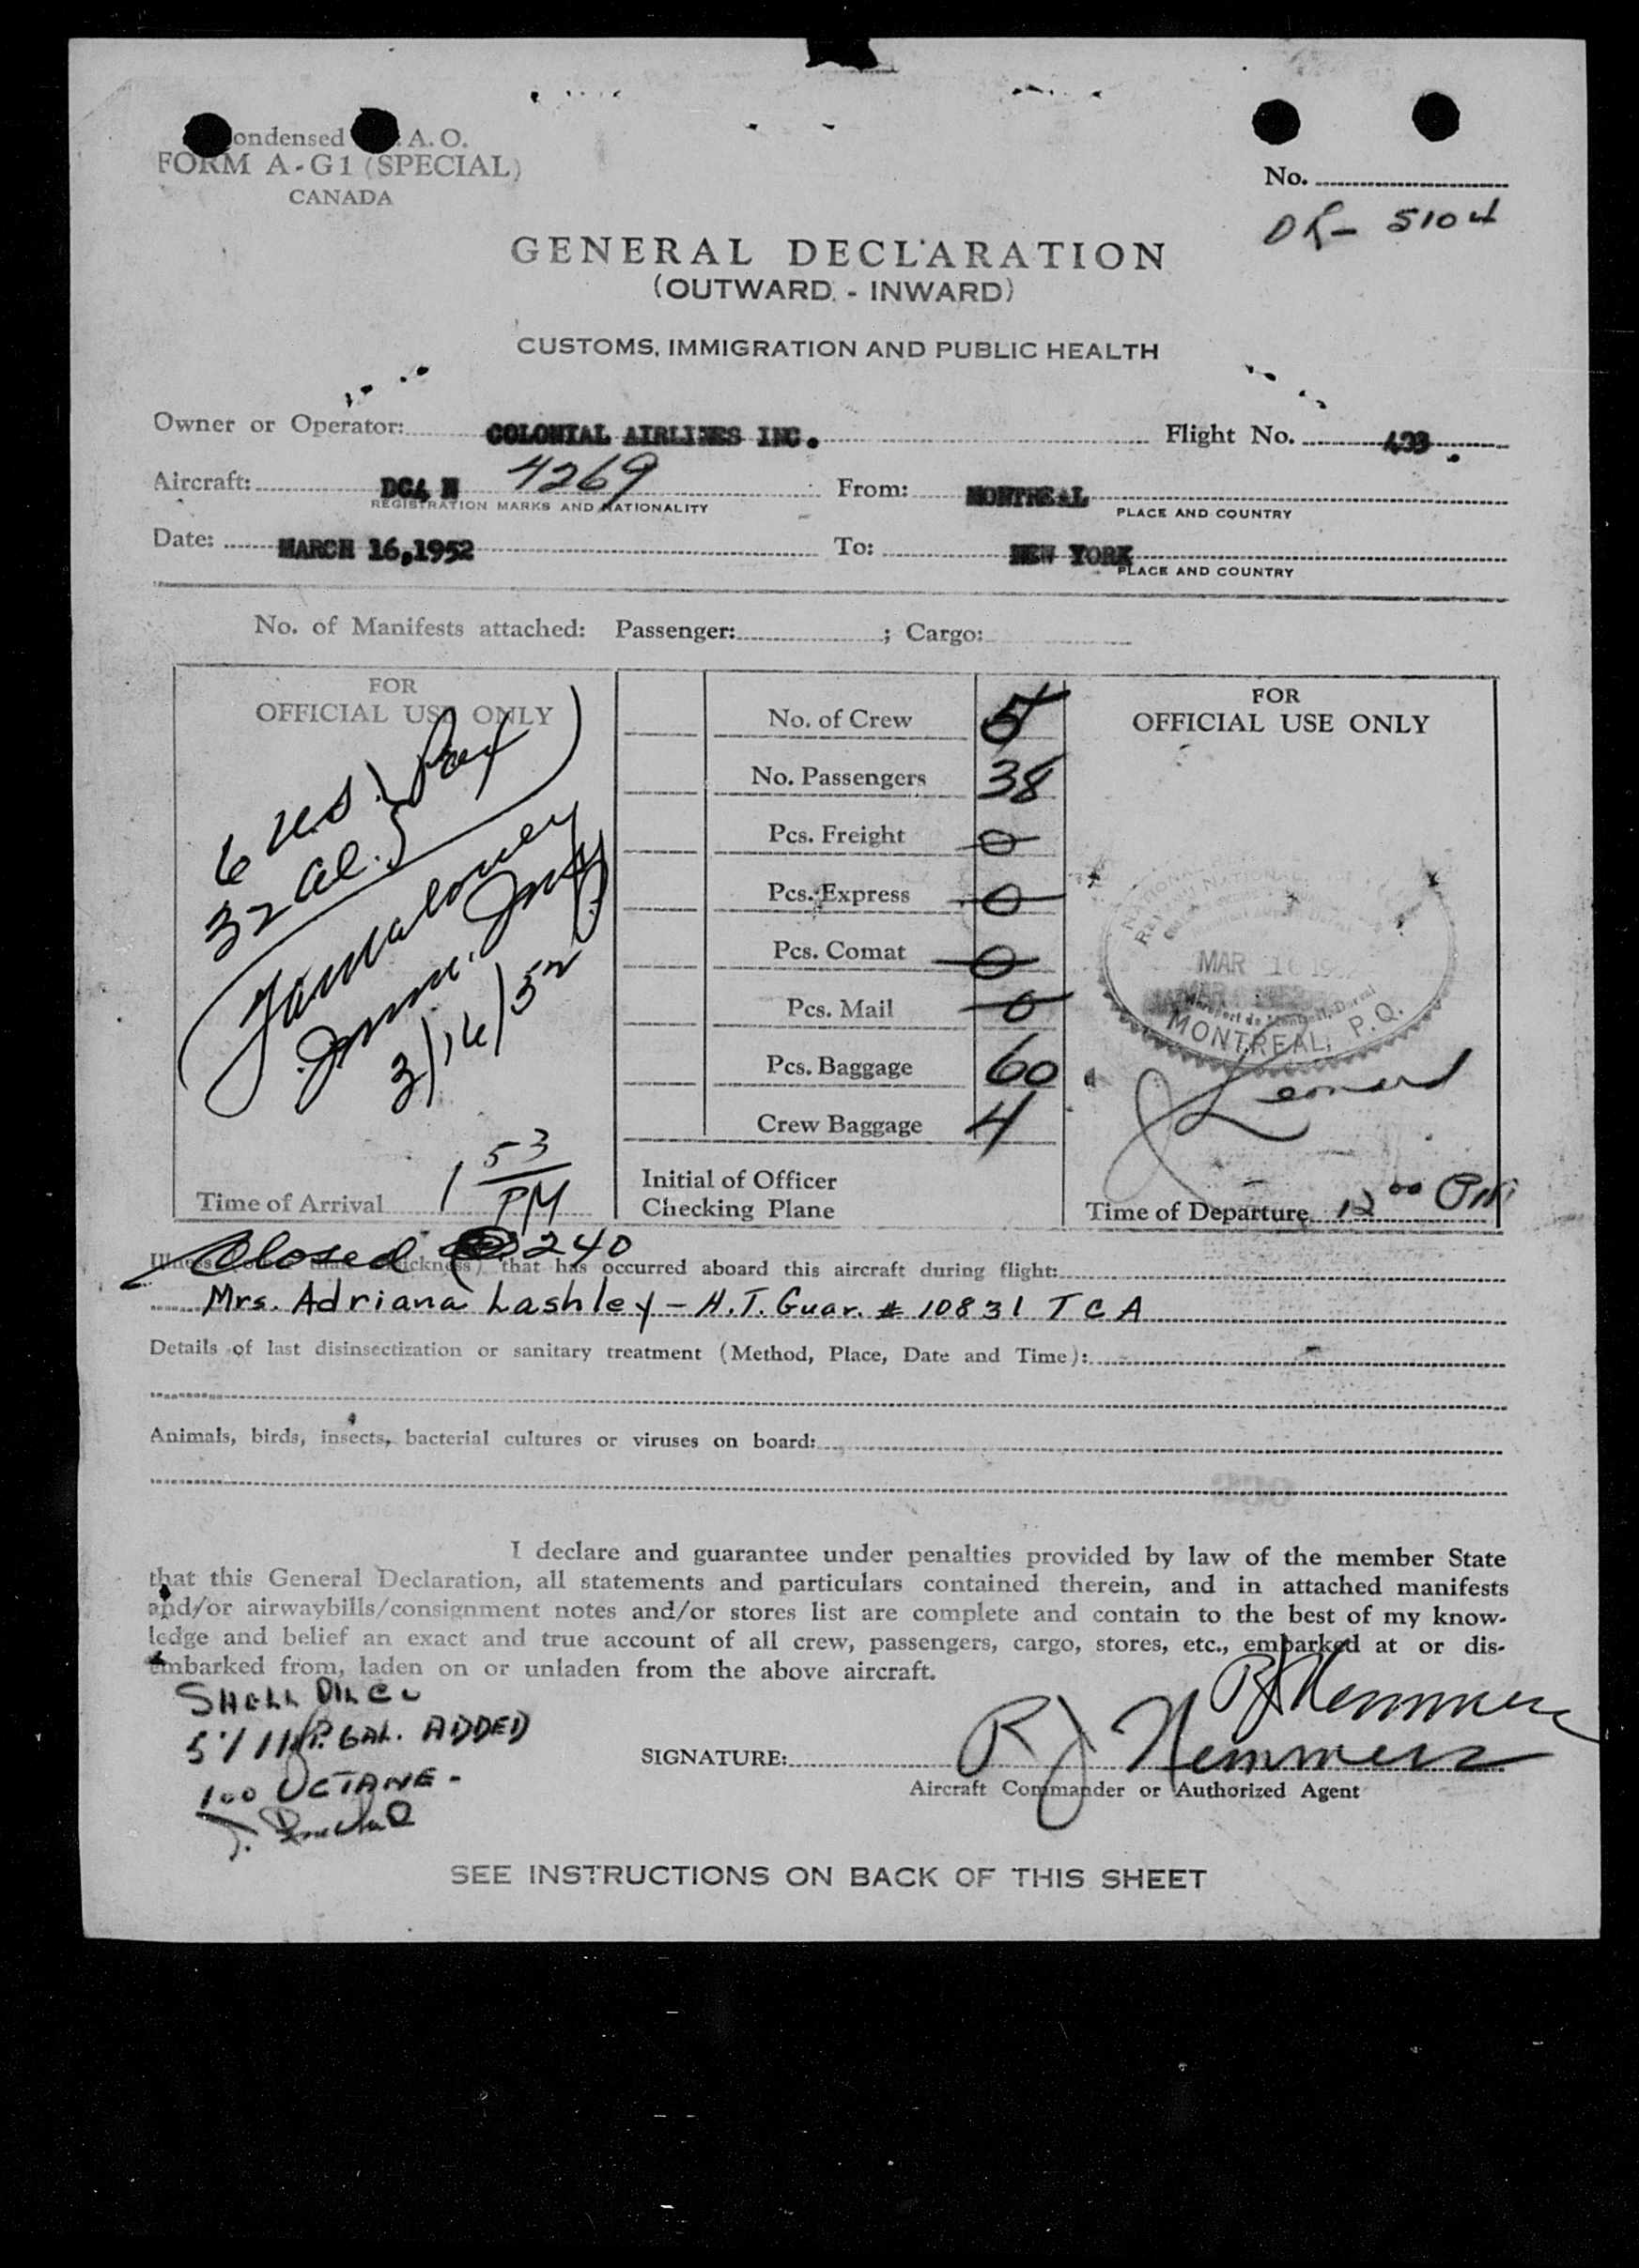 ondensed A. O.
FORM A-G1 (SPECIAL)
CANADA
No.
5104
GENERAL DECLARATION
(OUTWARD - INWARD)
CUSTOMS, IMMIGRATION AND PUBLIC HEALTH
Owner or Operator: COLONIAL AIRLINES INC. Flight No.
Aircraft: DC4 N 4269 From: MONTREAL
REGISTRATION MARKS AND NATIONALITY PLACE AND COUNTRY
Date: MARCH 16,1952 To: NEW YORK
PLACE AND COUNTRY
No. of Manifests attached: Passenger: ; Cargo:
FOR
OFFICIAL USE ONLY
6 U.S. } Pax
32 al.
Imm. Insp.
3/16/52
Time of Arrival 1 53 PM
No. of Crew 5
No. Passengers 38
Pcs. Freight 0
Pcs. Express 0
Pcs. Comat 0
Pcs. Mail 0
Pcs. Baggage 60
Crew Baggage 4
Initial of Officer
Checking Plane
FOR
OFFICIAL USE ONLY
MAR 16 195
MONTREAL, P.Q.
J Leonard
Time of Departure 12 00 PM
Closed 240
that has occurred aboard this aircraft during flight:
Mrs. Adriana Lashley - H.T. Guar. # 10831 TCA
Details of last disinsectization or sanitary treatment (Method, Place, Date and Time):
Animals, birds, insects, bacterial cultures or viruses on board:
I declare and guarantee under penalties provided by law of the member State
that this General Declaration, all statements and particulars contained therein, and in attached manifests
and/or airwaybills/consignment notes and/or stores list are complete and contain to the best of my know-
ledge and belief an exact and true account of all crew, passengers, cargo, stores, etc., embarked at or dis-
embarked from, laden on or unladen from the above aircraft.
SHELL OIL Co
GAL. ADDED
100 OCTANE -
RJ Nemmers
SIGNATURE: RJ Nemmers
Aircraft Commander or Authorized Agent
SEE INSTRUCTIONS ON BACK OF THIS SHEET